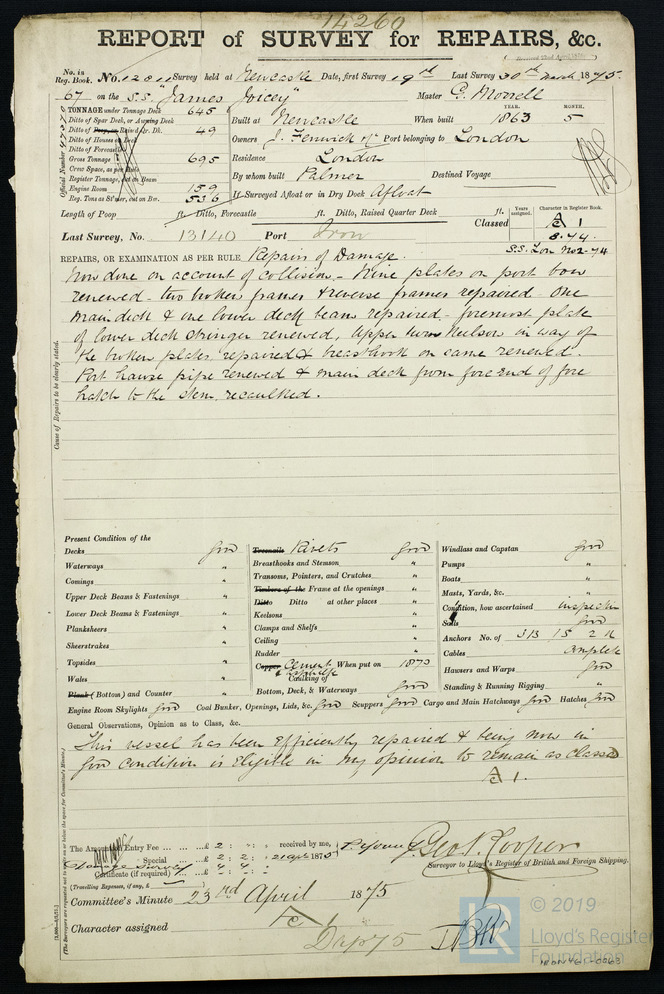 14260
REPORT of SURVEY for REPAIRS, &c.
No. in Reg. Book. No. 12811 Survey held at Newcastle Date, first Survey 19th Last Survey 30th March 1875.
67 on the S.S. "James Joicey" Master G. Morrell
TONNAGE under Tonnage Deck 645
Ditto of Spar Deck, or Awning Deck
Ditto of Poop, or Raised Qr. Dk. 49
Ditto of Houses on Deck
Ditto of Forecastle
Gross Tonnage 695
Crew Space, as per Rule
Register Tonnage, cut on Beam
Engine Room 159
Reg. Tons as St'mer, cut on Bm. 536
Official Number 47370
YEAR. MONTH.
Built at Newcastle When built 1863 5
Owners J. Fenwick Port belonging to London
Residence London
By whom built Palmer Destined Voyage
If Surveyed Afloat or in Dry Dock Afloat
Length of Poop ft. Ditto, Forecastle ft. Ditto, Raised Quarter Deck ft.
Years assigned. Character in Register Book.
Classed A 1
8.74.
S.S. Lon No 2-74
Last Survey, No. 13140 Port Iron
REPAIRS, OR EXAMINATION AS PER RULE Repairs of Damage.
Now done on account of collision - Nine plates on port bow
renewed - two broken frames & reverse frames repaired - One
main deck & one lower deck beam repaired - foremost plate
of lower deck stringer renewed, Upper keelson in way of
the broken plates repaired & breasthook on same renewed.
Port hawse pipe renewed & main deck from fore end of fore
hatch to the stem recaulked.
Cause of Repairs to be clearly stated.
Present Condition of the
Decks good
Waterways "
Comings "
Upper Deck Beams & Fastenings "
Lower Deck Beams & Fastenings "
Planksheers "
Sheerstrakes "
Topsides "
Wales "
Plank (Bottom) and Counter "
Treenails Rivets good
Breasthooks and Stemson "
Transoms, Pointers, and Crutches "
Timbers of the Frame at the openings "
Ditto Ditto at other places "
Keelsons "
Clamps and Shelfs "
Ceiling "
Rudder "
Copper Cement & asphalte When put on 1873
Caulking of
Bottom, Deck, & Waterways good
Windlass and Capstan good
Pumps "
Boats "
Masts, Yards, &c. "
Condition, how ascertained inspection
Sails good
Anchors No. of 3B 1S 2K
Cables Complete
Hawsers and Warps good
Standing & Running Rigging "
Engine Room Skylights good Coal Bunker, Openings, Lids, &c. good Scuppers good Cargo and Main Hatchways good Hatches good
General Observations, Opinion as to Class, &c.
This vessel has been Efficiently repaired & being now in
good condition is Eligible in my opinion to remain as classed
A 1.
The Amount Entry Fee £ 2 : " : " received by me,
Special £ 2 : 2 : " 21 apl 1875
Damage Survey 4 4
Certificate (if required)
(Travelling Expenses, if any, £
Geo. P. Cooper
Surveyor to Lloyd's Register of British and Foreign Shipping.
Committee's Minute 23rd April 1875
Character assigned A 1
D ap 75
(The Surveyors are requested not to write on or below the space for Committee's Minute.)
© 2019
LR
Lloyd's Register
Foundation
IRON461-0063